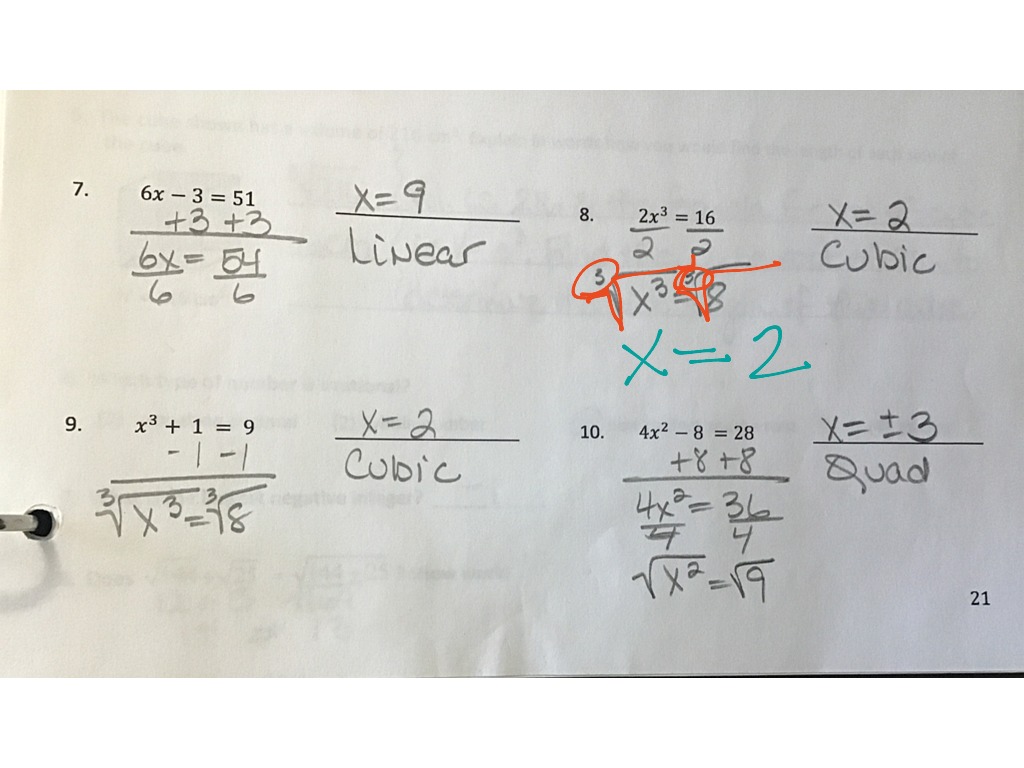 7. 6x − 3 = 51
+3 +3
6x = 54
6 6
x=9
Linear
8. 2x³ = 16
2 2
³√x³ = ³√8
x = 2
x= 2
Cubic
9. x³ + 1 = 9
-1 -1
³√x³ = ³√8
x=2
Cubic
10. 4x² − 8 = 28
+8 +8
4x² = 36
4 4
√x² = √9
x= ±3
Quad
21